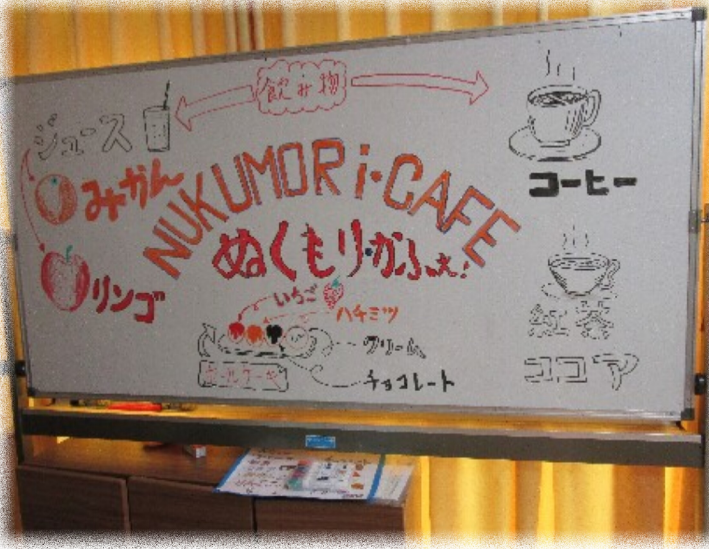 飲み物
ジュース
みかん
リンゴ
NUKUMORi・CAFE
ぬくもり・かふぇ!
コーヒー
紅茶
ココア
いちご
ハチミツ
クリーム
チョコレート
ボールケーキ